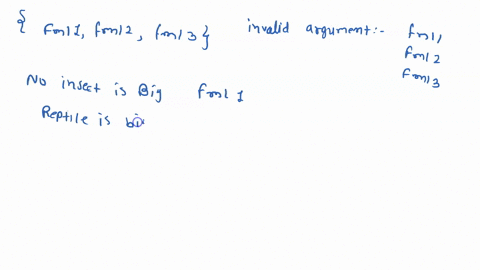 { fml 1, fml 2, fml 3 } invalid argument:- fml 1,
fml 2
fml 3
No insect is Big fml 1
Reptile is big